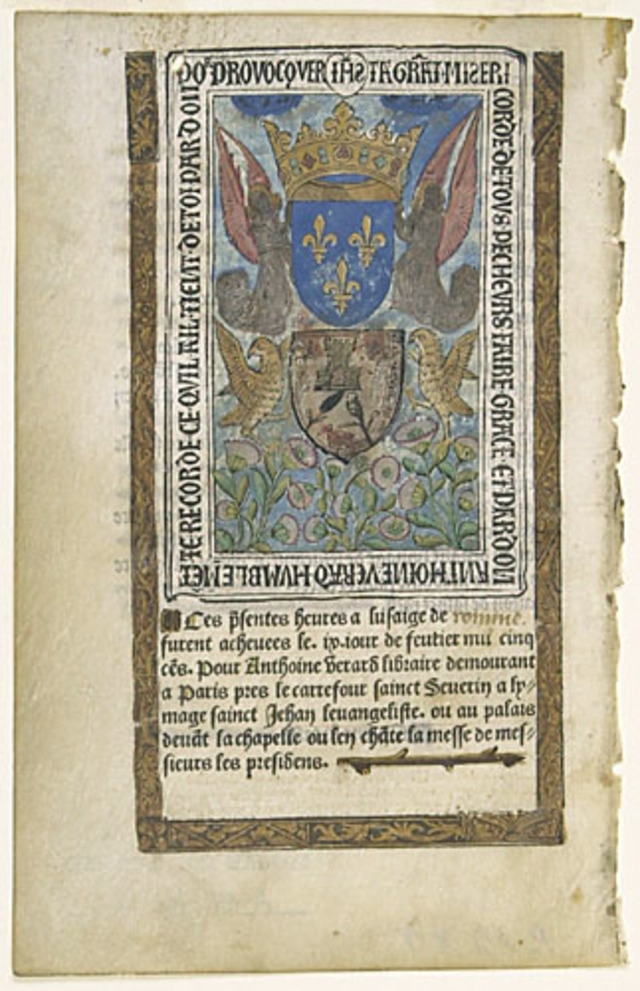 POR PROVOCQVER IHS TA GRĀT MISERI
CORDE DE TOVS PECHEVRS FAIRE GRACE ET PARDON
ANTHOINE VERAD HVMBLEMĒT
TE RECORDE CE QVIL A IL TIENT DE TOI PAR DON
Ces p̃sentes heures a lusaige de romme.
furent acheuees le. ix. iour de feurier mil cinq
cēs. Pour Anthoine Verard libraire demourant
a Paris pres le carrefour sainct Seuerin a ly-
mage sainct Jehan leuangeliste. ou au palais
deuāt la chapelle ou len chāte la messe de mes-
sieurs les presidens.